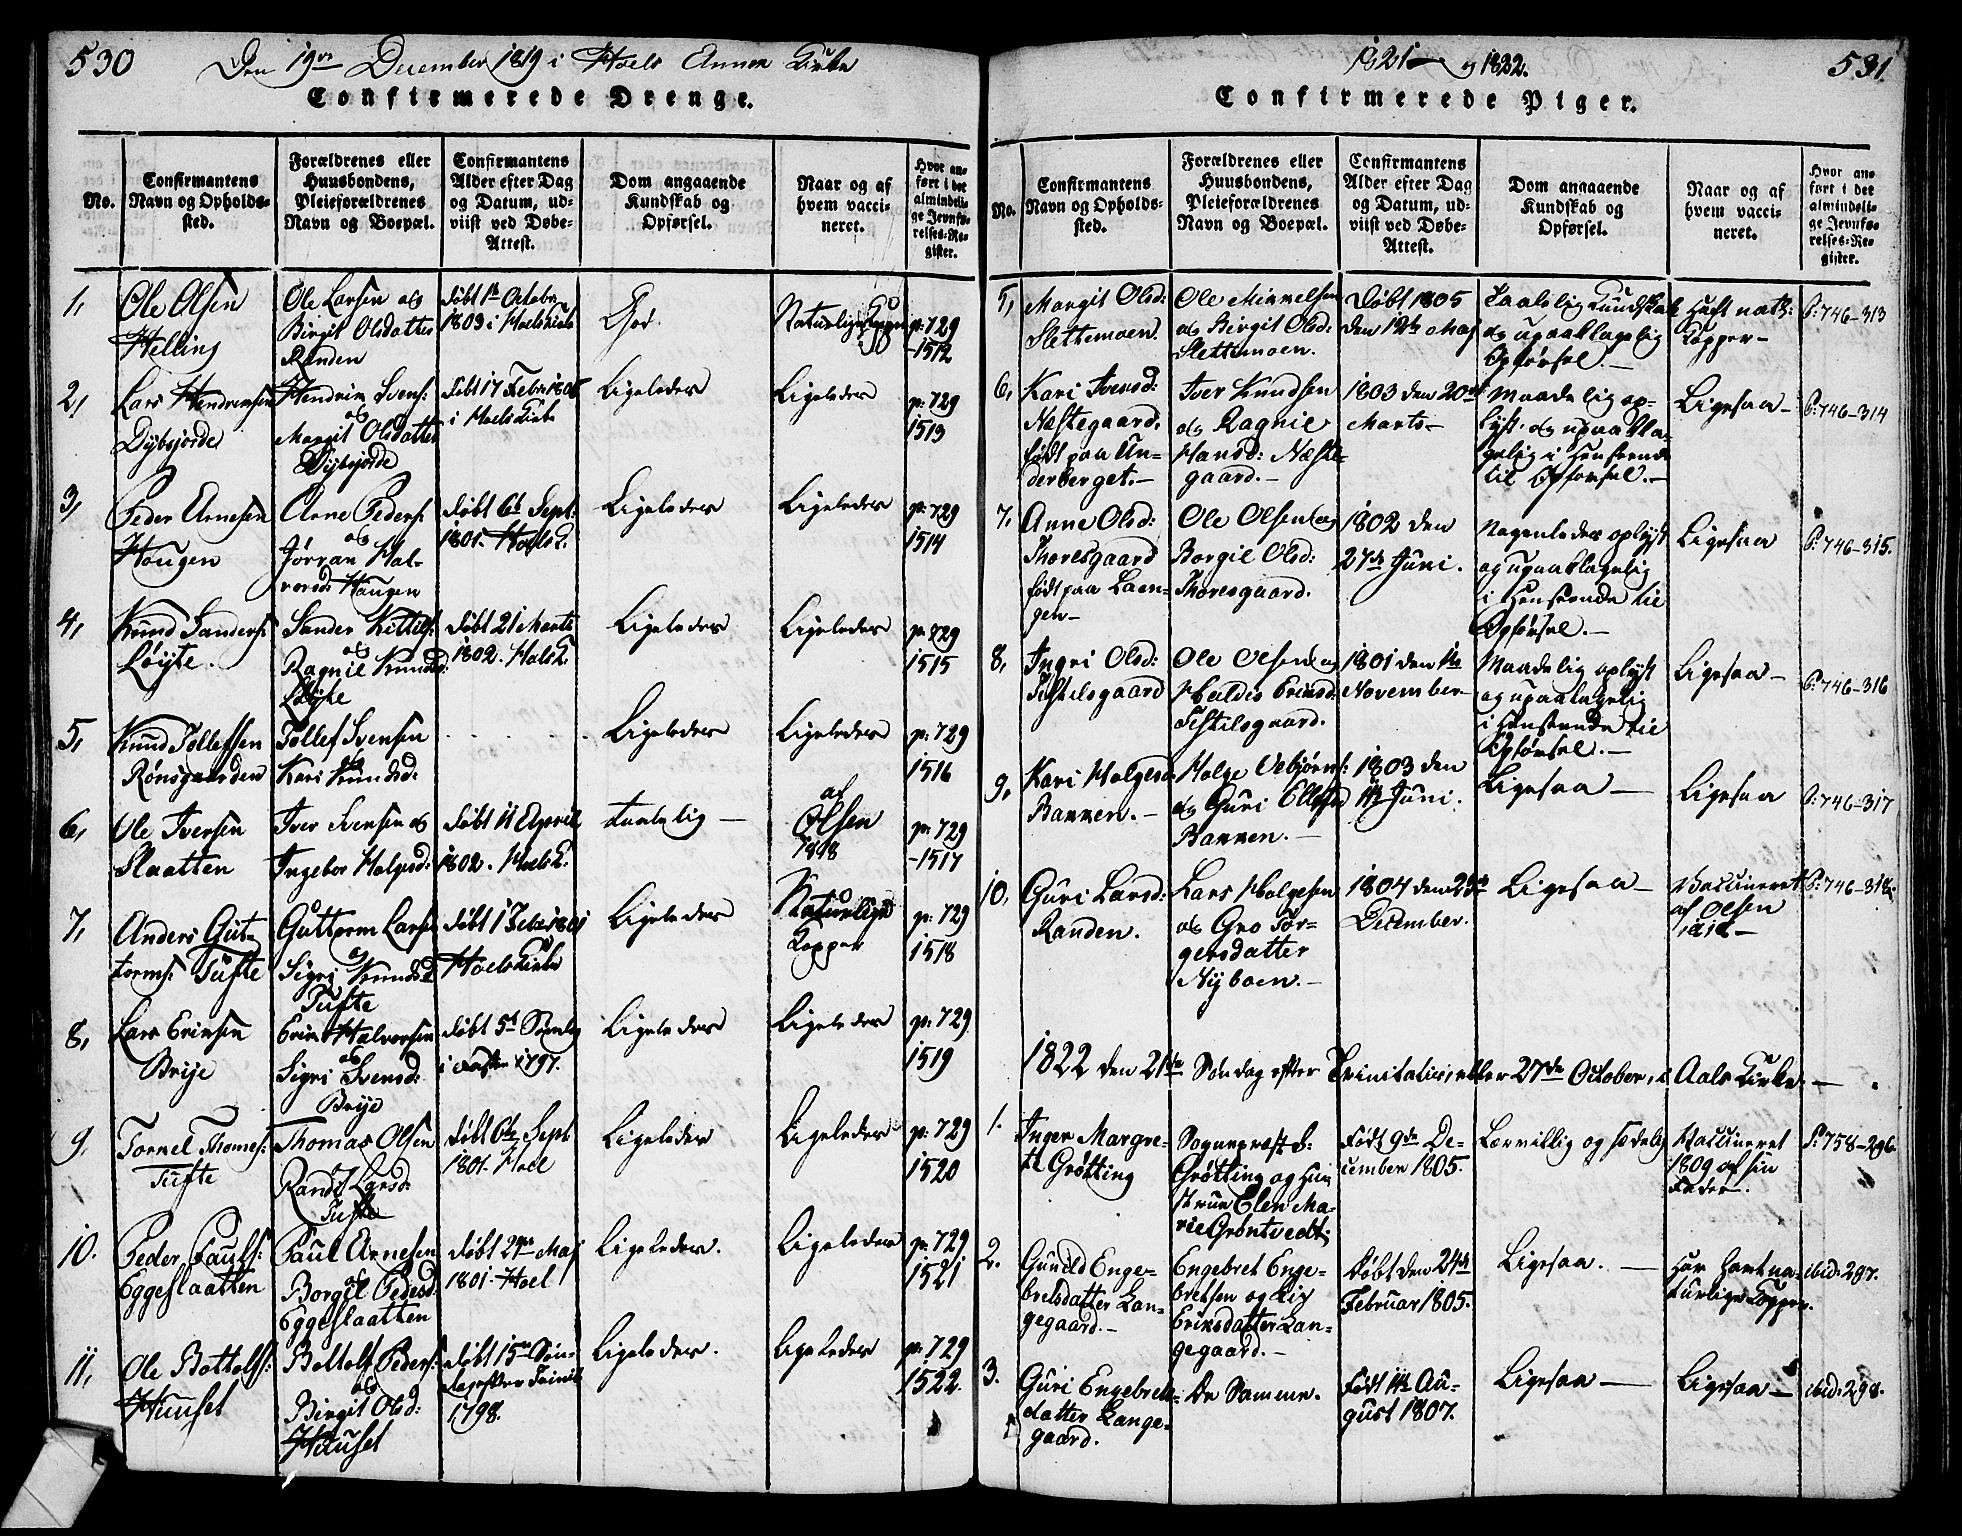 530
Den 19de December 1819 i Hoels Annex Kirke
Confirmerede Drenge.
No.
Confirmantens
Navn og Opholds-
sted.
Forældrenes eller
Huusbondens,
Pleieforældrenes
Navn og Boepæl.
Confirmantens
Alder efter Dag
og Datum, ud-
viist ved Døbe-
Attest.
Dom angaaende
Kundskab og
Opførsel.
Naar og af
hvem vacci-
neret.
Hvor an-
ført i det
almindeli-
ge Jevnfø-
relses-Re-
gister.
1,
Ole Olsen
Helling
Ole Larsen og
Birgit Olsdatter
Randen
Døbt 1te Octobr
1803 i Hoels Kirke
God.
Naturlige Kopper
p: 729
-1512
2,
Lars Hendrichsen
Dybsjorde
Hendrich Svens:
og
Margit Olsdatter
Dybsjorde
Døbt 17 Febr
i Hoels Kirke
Ligeledes
Ligeledes
p: 729
1513
3,
Peder Arnesen
Hougen
Arne Peders:
og
Jørran Hal-
vorsd: Haugen
Døbt 6te Sept:
1801. Hoels K.
Ligeledes
Ligeledes
p: 729
1514
4,
Knud Sanders:
Løijte.
Sander Kittils:
og
Ragnil Knudsd:
Løijte
Døbt 21 Marts
1802. Hoels K.
Ligeledes
Ligeledes
p: 729
1515
5,
Knud Tollefsen
Rønsgaarden
Tollef Svensen
og
Kari Knudsd:
Ligeledes
Ligeledes
p: 729
1516
6,
Ole Iversen
Slaatten
Iver Svensen og
Ingebor Holgesd:
Døbt 11 April
1802. Hoels K.
taalelig —
af
Olsen
1818
p: 729
-1517
7,
Anders Gut-
torms: Tufte
Guttorm Lars:
og
Sigri Knudsd:
Tufte
Døbt 1 Febr 1801
Hoels Kirke
Ligeledes
Naturlige
Kopper
p: 729
1518
8,
Lars Erichsen
Brije
Erich Halvorsen
og
Sigri Svensd:
Brije
Døbt 5te Søndag
i Fasten 1797.
Ligeledes
Ligeledes
p: 729
1519
9,
Tornel Thomes:
Tufte
Thomas Olsen
og
Randi Larsd:
Tufte
Døbt 6te Sept
1801. Hoel
Ligeledes
Ligeledes
p: 729
1520
10.
Peder Pauls:
Eggeslaatten
Paul Arnesen
og
Borgil Pedersd:
Eggeslaatten
Døbt 24de Maj
1801. Hoel
Ligeledes.
Ligeledes
p: 729
1521
11,
Ole Bottolfs:
Huuset
Bottolf Peders:
og
Birgit Olsd:
Huuset
Døbt 15de Søn-
dag efter Trinit:
1798.
Ligeledes.
Ligeledes
p: 729
1522.
1821 og 1822.
531.
Confirmerede Piger.
No.
Confirmantens
Navn og Opholds-
sted.
Forældrenes eller
Huusbondens,
Pleieforældrenes
Navn og Boepæl.
Confirmantens
Alder efter Dag
og Datum, ud-
viist ved Døbe-
Attest.
Dom angaaende
Kundskab og
Opførsel.
Naar og af
hvem vacci-
neret.
Hvor an-
ført i det
almindeli-
ge Jevnfø-
relses-Re-
gister.
5,
Margit Olsd:
Slettemoen.
Ole Mikkelsen
og Birgit Olsd:
Slettemoen.
Døbt 1805
den 12te Maj
Taalelig Kundskab
og upaaklagelig
Opførsel. —
Haft natl:
Kopper —
P: 746-313
6,
Kari Iversd:
Nestegaard.
født paa Un-
derberget. —
Iver Knudsen
og Ragnil
Hansd: Neste-
gaard. —
1803 den 20de
Marts —
Maadelig op-
lyst og upaakla-
gelig i Henseende
til Opførsel. —
Ligesaa —
P: 746-314
7,
Anne Olsd:
Thoresgaard
født paa Laen-
gen —
Ole Olsen og
Borgil Olsd:
Thoresgaard.
1802 den
27de Juni.
Nogenledes oplyst
og upaaklagelig
i Henseende til
Opførsel. —
Ligesaa
P: 746-315.
8,
Ingri Olsd:
Tistilsgaard
Ole Olsen og
Haldis Erichsd:
Tistilsgaard.
1801 den 1te
November —
Maadelig oplyst
og upaaklagelig
i Henseende til
Opførsel. —
Ligesaa —
P: 746-316
9,
Kari Holgesd:
Bakken. —
Holge Vebjørns:
og Guri Ellefsd
Bakken. —
1803 den
Juni.
Ligesaa —
Ligesaa
P: 746-317
10,
Guri Larsd:
Randen.
Lars Holgesen
og Gro Tor-
gersdatter
Nyboen. —
1804 den 23de
December.
Ligesaa —
Vaccineret
af Olsen
P: 746-318.
1822 den 21de Søndag efter Trinitatis, eller 27de October, i Aals Kirke. —
1.
Inger Margre-
te Grøtting
Sognepræst
Grøtting og Hu-
strue Elen Ma-
rie Grøntvedt;
Født 9de De-
cember 1805.
Lærvillig og sædelig
Vaccineret
1809 af sin
Fader.
P: 758-296.
2.
Gunild Enge-
bretsdatter Lan-
gegaard. —
Engebret Enge-
bretsen og Liv
Erichsdatter Lan-
gegaard. —
Døbt den 24de
Februar 1805.
Ligesaa. —
Har havt na-
turlige Kopper.
ibid: 297.
3.
Guri Engebrets-
datter Lange-
gaard.
De Samme.
Født 11te Au-
gust 1807.
Ligesaa —
Ligesaa —
ibid: 298.